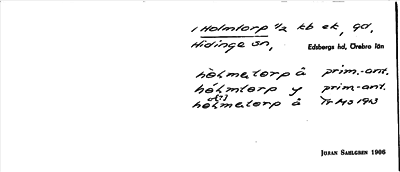 1 Holmtorp ½ kb ek, gd,
Hidinge sn, Edsbergs hd, Örebro län
hòlmetorp â prim.-ant.
hólmtorp y prim.-ant.
hòlmetorp â 1913
JÖRAN SAHLGREN 1906